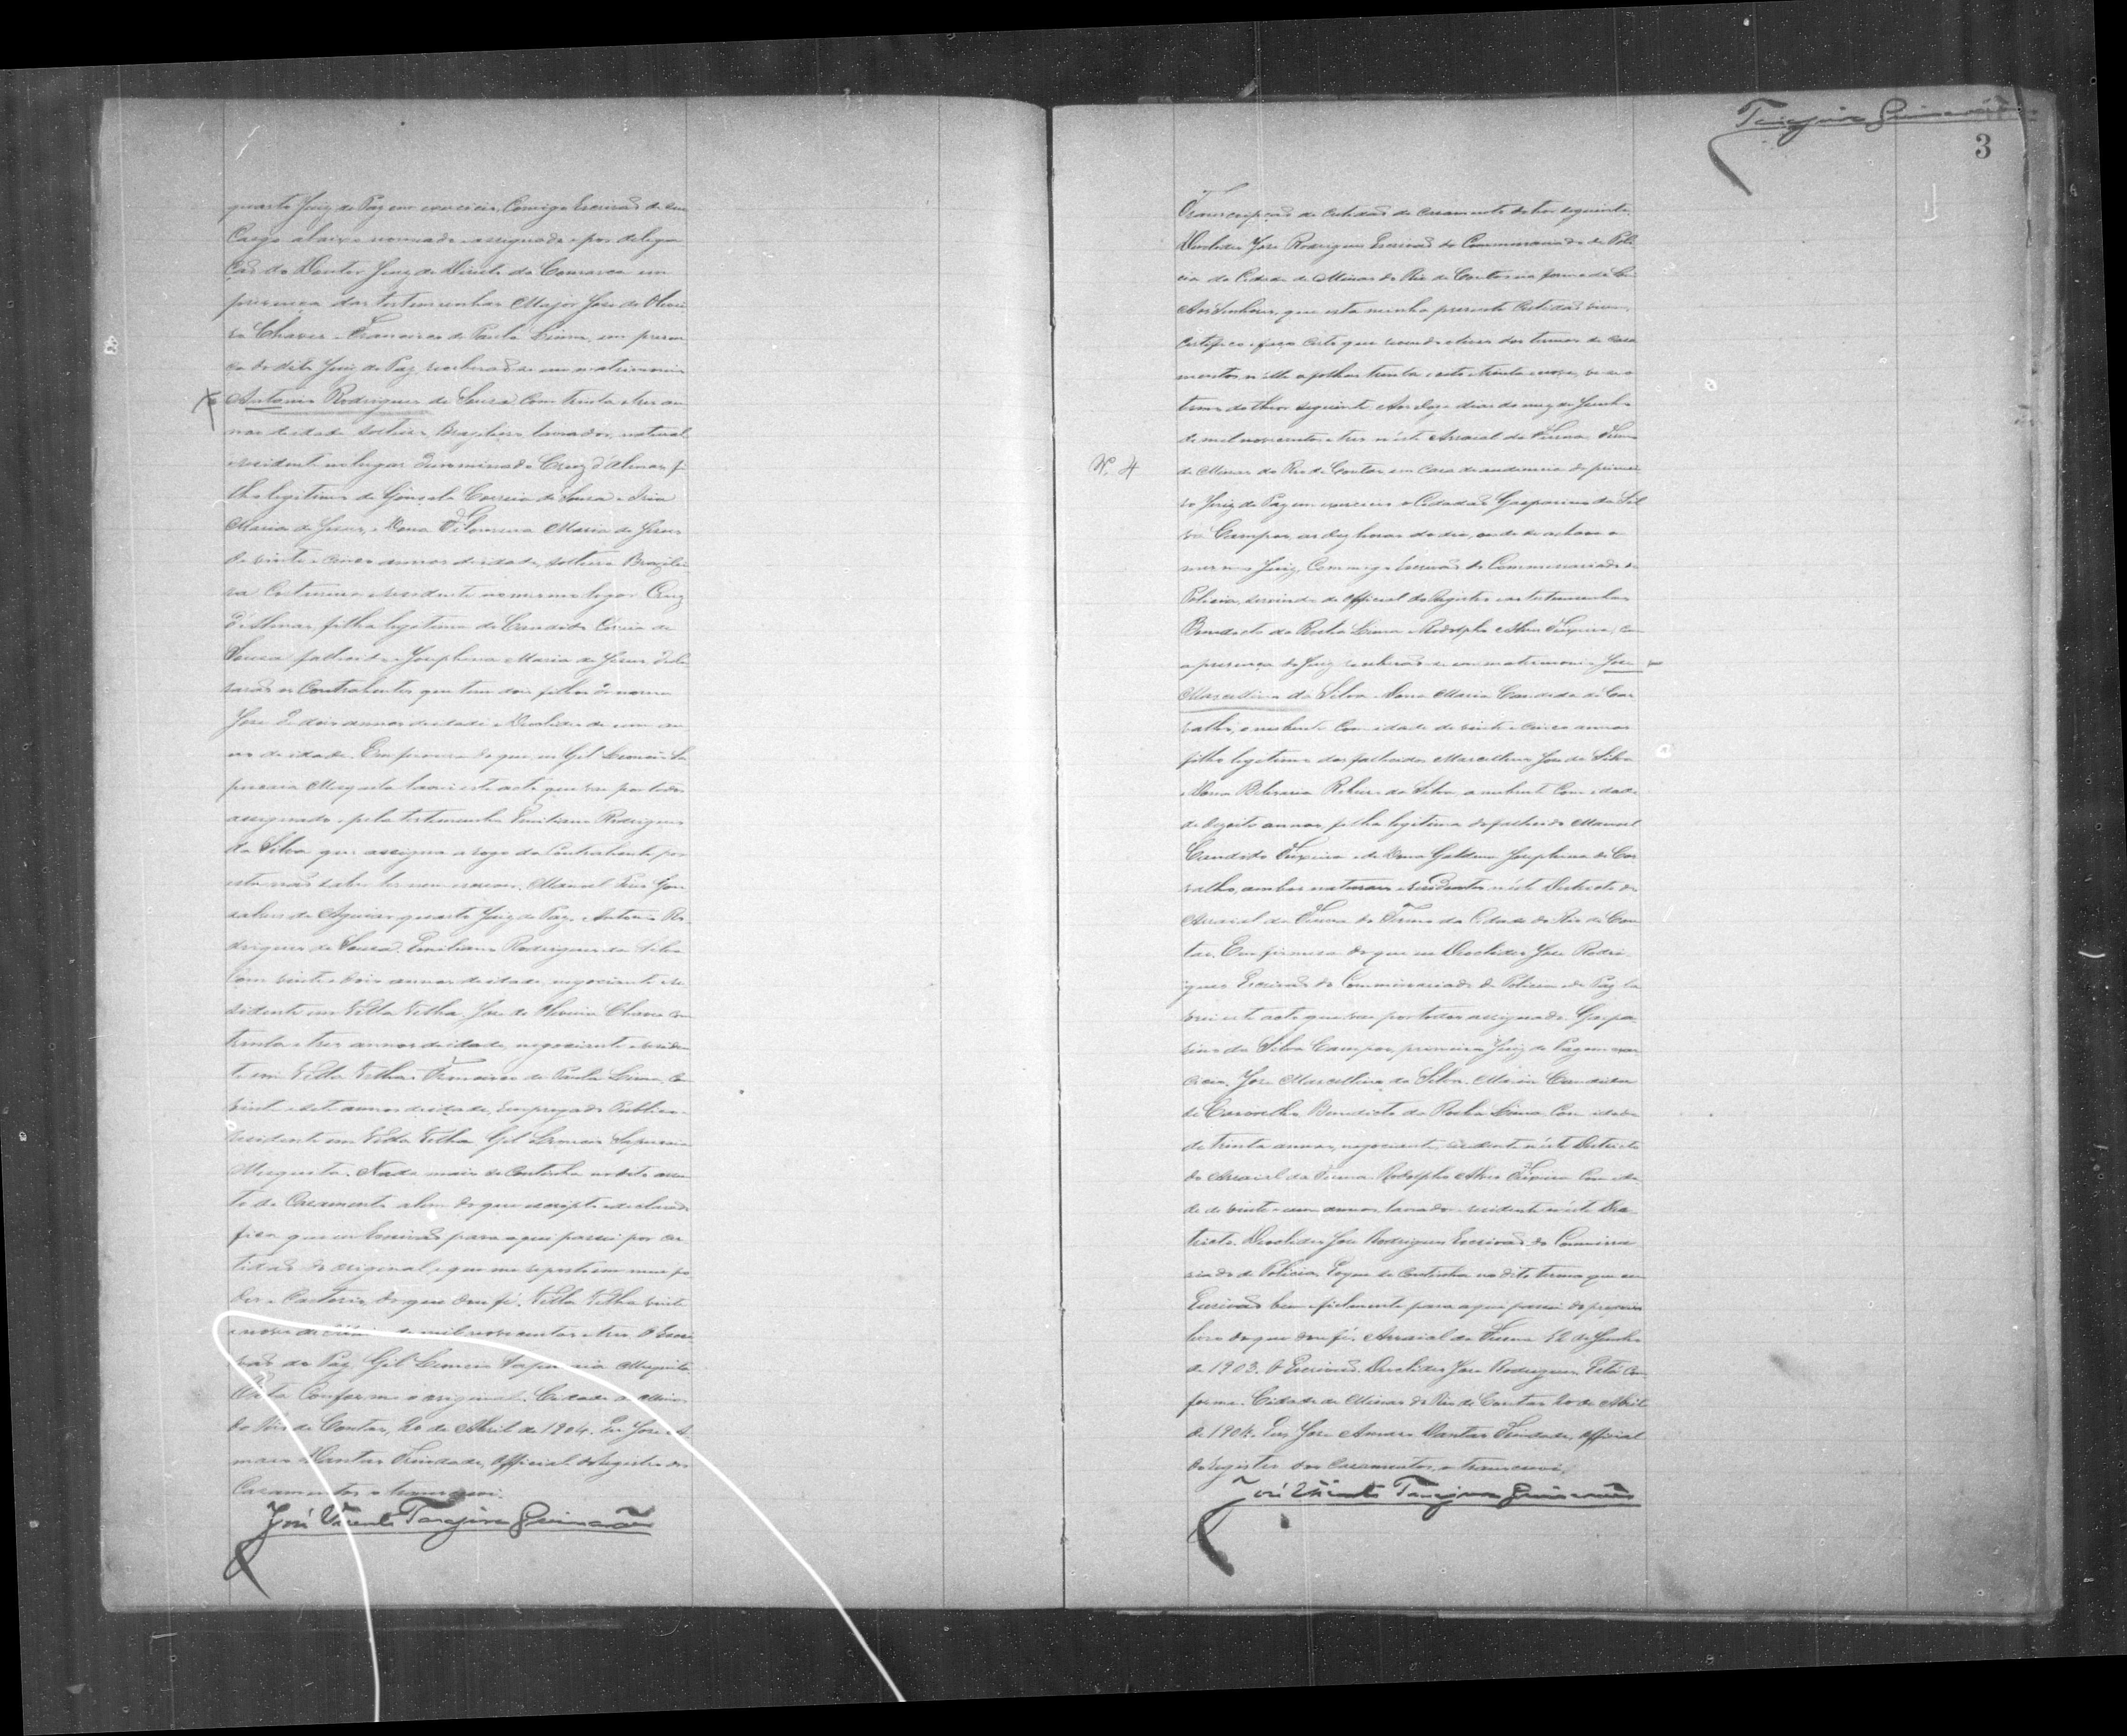 quarto Juiz de Paz em exercicio, Comigo Escrivaõ de seu
Cargo abaixo nomeado e assignado e por delega
çaõ do Doutor Juiz de Direito da Comarca em
presença das testemunhas Major José de Olivei
ra Chaves e Francisco de Paula Lima, em presen
ça do dito Juiz de Paz, receberaõ-se em matrimonio
Antonio Rodrigues de Sousa com trinta e tres an
nos de idade solteiro, Brazileiro lavrador, natural
e residente no lugar denominado Cruz d'Almas, fi
lho legitimo de Gonsalo Correia de Sousa e Iria
Maria de Jesus, e Dona Filomena Maria de Jesus
de vinte e cinco annos de idade, solteira Brazilei
ra, Costureira e residente no mesmo lugar Cruz
d'Almas, filha legitima de Candido Correia de
Sousa fallecido e Josephina Maria de Jesus, decla
raraõ os Contrahentes que tem dois filhos de nomes
José de dois annos de idade e Deoclides de um an
no de idade. Em firmeza do que eu Gil Leoncio Sa
pucaia Mesquita lavrei este acto que vae por todos
assignado e pela testemunha Emiliano Rodrigues
da Silva que assigna a rogo da Contrahente por
esta naõ saber ler nem escrever. Manoel Gon
salves de Aguiar, quarto Juiz de Paz. Antonio Ro
drigues de Sousa. Emiliano Rodrigues da Silva
com vinte e dois annos de idade, negociante re
sidente em Villa Velha. José de Oliveira Chaves com
trinta e tres annos de idade, negociante e residen
te em Villa Velha. Francisco de Paula Lima, com
vinte e sete annos de idade, Empregado Publico
residente em Villa Velha. Gil Leoncio Sapucaia
Mesquita. Nada mais se Continha no dito assen
to de Casamento alem do que escripto e declarado
fica que eu Escrivaõ para aqui passei por cer
tidaõ do original, e que me reporto em meu po
der e Cartorio do que dou fé. Villa Velha vinte
e nove de Maio de mil novecentos e tres. O Escri
vaõ de Paz, Gil Leoncio Sapucaia Mesquita.
Está Conforme o original. Cidade de Minas
do Rio de Contas, 20 de Abril de 1904. Eu José A
maro Dantas Trindade, Official do Registro dos
Casamentos o transcrevi.
José Vicente Tanajura Guimarães
Tanajura Guimarães
3
Transcripçaõ da certidaõ de casamento do teor seguinte
Deoclides José Rodrigues Escrivaõ do Commissariado de Poli
cia da Cidade de Minas do Rio de Contas na forma da Lei
Aos Senhores, que esta minha presente Certidaõ virem,
Certifico e faço certo que revendo o livro dos termos de casa
mentos n'elle a folhas trinta e oito e trinta e nove, vê-se o
termo do theor seguinte Aos doze dias do mez de Junho
de mil novecentos e tres n'este Arraial da Furna Termo
N. 4
de Minas do Rio de Contas, em casa de audiencia do primei
ro Juiz de Paz em exercicio o Cidadaõ Gasparino da Sil
va Campos, as dez horas do dia, onde se achava o
mesmo Juiz, Commigo Escrivaõ do Commissariado de
Policia, servindo de Official do Registro e as testemunhas
Benedicto da Rocha Lima e Rodolpho Alves Teixeira, em
a presença do Juiz receberaõ-se em matrimonio José
Marcellino da Silva e Dona Maria Candida de Car
valho, o nubente com idade de vinte e cinco annos
filho legitimo dos fallecidos Marcellino José da Silva
e Dona Ribeiro da Silva, a nubente com edade
de dezoito annos, filha legitima do fallecido Manoel
Candido Teixeira e de Dona Galdina Josephina de Car
valho, ambos naturaes e residentes n'este Districto do
Arraial da Furna do Termo da Cidade do Rio de Con
tas. Em firmesa do que eu Deoclides José Rodri
gues Escrivaõ do Commissariado de Policia e de Paz la
vrei este acto que vae por todos assignado. Gaspa
rino da Silva Campos, primeiro Juiz de Paz em exer
cicio. José Marcellino da Silva. Maria Candida
de Carvalho. Benedicto da Rocha Lima com idade
de trinta annos, negociante, residente n'este Districto
do Arraial da Furna. Rodolpho Alves Teixeira com ida
de de vinte e um annos, lavrador, residente n'este Dis
tricto. Deoclides José Rodrigues Escrivaõ do Commissa
riado de Policia. E o que se continha no dito termo que eu
Escrivaõ bem e fielmente para aqui passei do proprio
livro do que dou fé. Arraial da Furna 12 de Junho
de 1903. O Escrivaõ. Deoclides José Rodrigues. Está Con
forme. Cidade de Minas do Rio de Contas 20 de Abril
de 1904. Eu, José Amaro Dantas Trindade, Official
do Registro dos Casamentos, o transcrevi.
José Vicente Tanajura Guimarães